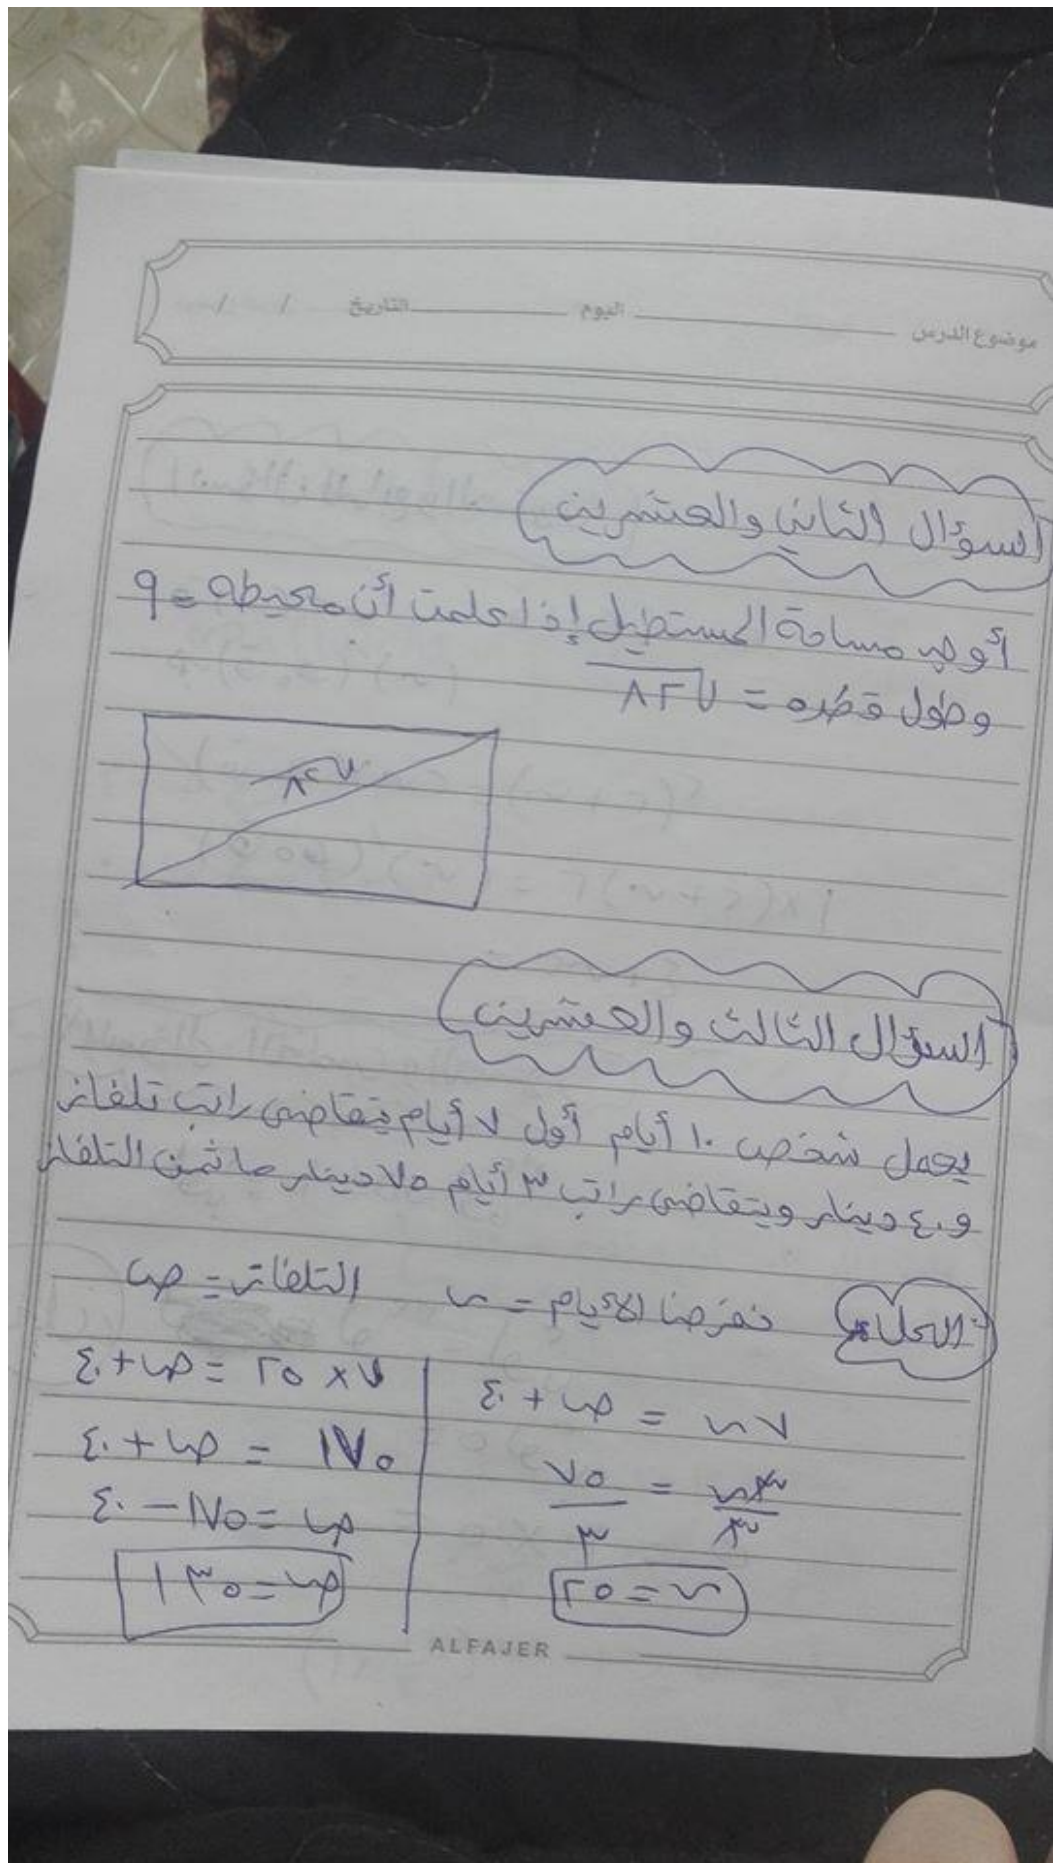 موضوع الدرس اليوم التاريخ / /
السؤال الثاني والعشرين
أوجد مساحة المستطيل إذا علمت أن محيطه = ٩
وطول قطره = √٨٢
√٨٢
السؤال الثالث والعشرين
يعمل شخص ١٠ أيام أول ٧ أيام يتقاضى راتب تلفاز
و ٤٠ دينار ويتقاضى راتب ٣ أيام ٧٥ دينار ما ثمن التلفاز
الحل: نفرض الأيام = س التلفاز = ص
٧س = ص + ٤٠
٣س/٣ = ٧٥/٣
س = ٢٥
٧ × ٢٥ = ص + ٤٠
١٧٥ = ص + ٤٠
ص = ١٧٥ - ٤٠
ص = ١٣٥
ALFAJER